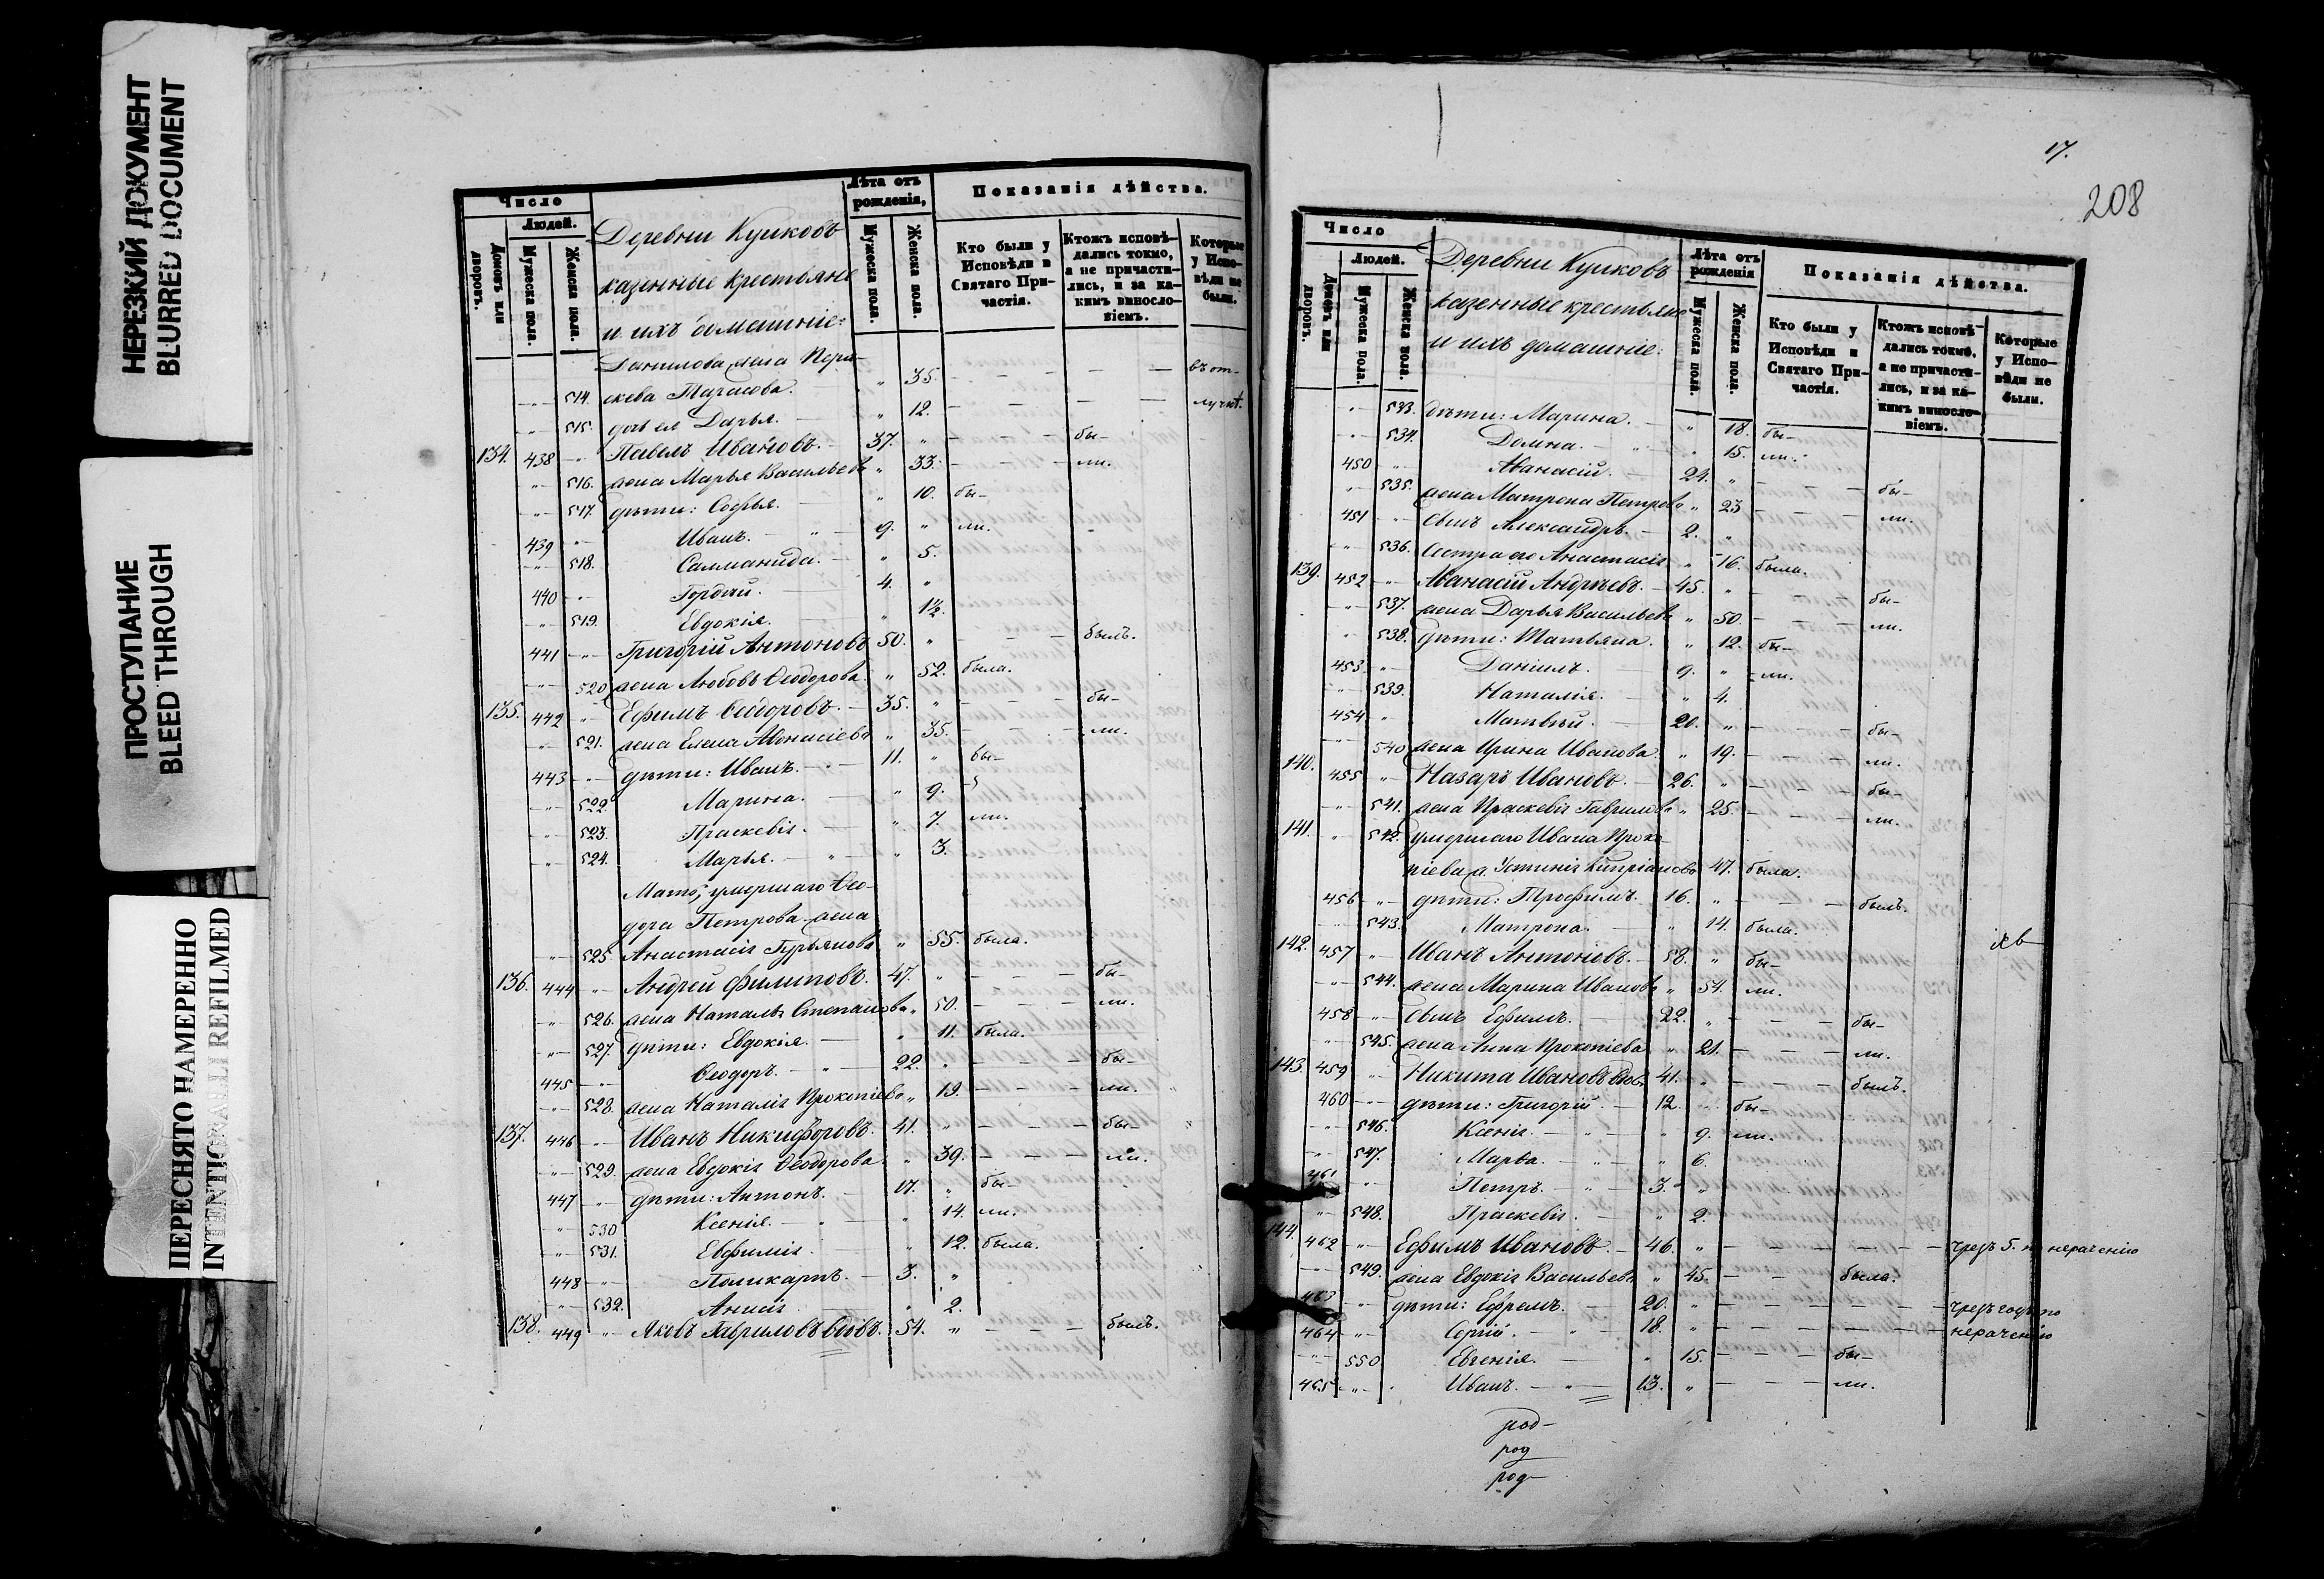 НЕРЕЗКИЙ ДОКУМЕНТ
BLURRED DOCUMENT
ПРОСТУПАНИЕ
BLEED THROUGH
ПЕРЕСНЯТО НАМЕРЕННО
INTENTIONALLI REFILMED
Число
Людей.
Домовъ или дворовъ.
Мужеска пола.
Женска пола.
Деревни Кушковъ
казенные крестьяне
и ихъ домашніе:
Лѣта отъ рожденія,
Мужеска пола.
Женска пола.
Показанія дѣйства.
Кто были у Исповѣди и Святаго Причастія.
Ктожъ исповѣдались токмо, а не причастились, и за какимъ виносло­віемъ.
Которые у Исповѣди не были.
Данилова жена Пора- въ от-
514. скева Тарасова. " 35. лучкѣ.
515. дочь ея Дарья. " 12.
134. 438 " Павелъ Ивановъ. 37. " бы-
" 516. жена Марья Васильева " 33. ли.
" 517. дѣти: Софья. " 10. бы-
439 " Иванъ. 9. " ли.
" 518. Саломанида. " 5.
440 " Гордѣй. 4. "
" 519. Евдокія. " 1½.
441 " Григорій Антоновъ 50. " былъ.
" 520 жена Любовь Ѳеодорова. " 52. была.
135. 442 " Ефимъ Ѳеодоровъ. 35. " бы-
" 521. жена Елена Аѳонасіева " 35. ли.
443 " дѣти: Иванъ. 11. " бы-
" 522 Марина. " 9.
" 523. Праскевія. " 7. ли.
" 524. Марья. " 3.
Мать, умершаго Ѳео-
дора Петрова жена
" 525. Анастасія Гурьянова " 55. была.
136. 444 " Андрей Филиповъ. 47. " бы-
" 526. жена Наталья Степанова " 50. ли.
" 527. дѣти: Евдокія. " 11. была.
445 " Ѳеодоръ. 22. " бы-
" 528. жена Наталія Прокопіева " 19. ли.
137. 446 " Иванъ Никифоровъ. 41. " бы-
" 529. жена Евдокія Ѳеодорова. " 39. ли.
447 " дѣти: Антонъ. 17. " бы-
" 530 Ксенія. " 14. ли.
" 531. Евфимія. " 12. была.
448 " Поликарпъ. 3. "
" 532. Анисія " 2.
138. 449 " Яковъ Гавриловъ вдовъ. 54. " былъ.
17.
208
Число
Людей.
Домовъ или дворовъ.
Мужеска пола.
Женска пола.
Деревни Кушковъ
казенные крестьяне
и ихъ домашніе:
Лѣта отъ рожденія
Мужеска пола.
Женска пола.
Показанія дѣйства.
Кто были у Исповѣди и Святаго Причастія.
Ктожъ исповѣдались токмо, а не причастились, и за какимъ винословіемъ.
Которые у Исповѣди не были.
" 533. дѣти: Марина. " 18. бы-
" 534. Домна. " 15. ли.
450 " Аѳанасій. 24. " бы-
" 535. жена Матрона Петрова " 23 ли.
451 " сынъ Александръ. 2. "
" 536. сестра его Анастасія " 16. была.
139. 452 " Аѳанасій Андреевъ. 45. " бы-
" 537. жена Дарья Васильева " 50. ли.
" 538. дѣти: Татьяна. " 12. бы-
453 " Даніилъ. 9. " ли.
" 539. Наталія. " 4.
454 " Матвѣй. 20. " бы-
" 540 жена Ирина Иванова. " 19. ли.
140. 455 " Назаръ Ивановъ. 26. " бы-
" 541. жена Праскевія Гаврилова " 25. ли.
141. " 542. умершаго Ивана Проко-
піева ж. Устинія Кипріанова 47. была.
456 " дѣти: Трофимъ. 16. " былъ.
" 543. Матрона. " 14. была.
142. 457 " Иванъ Антоновъ. 58. " бы-
" 544. жена Марина Иванова " 54. ли.
458 " сынъ Ефимъ. 22. " бы-
" 545. жена Анна Прокопіева " 21. ли.
143. 459 " Никита Ивановъ вдов. 41. " былъ.
460 " дѣти: Григорій. 12. " бы-
" 546. Ксенія. " 9. ли.
" 547. Марѳа. " 6.
461 " Петръ. 3. "
" 548. Праскевія. " 2.
144. 462 " Ефимъ Ивановъ. 46. " чрезъ 5. по нераченію
" 549. жена Евдокія Васильева " 45. была.
463 " дѣти: Ефремъ. 20. " чрезъ годъ по
464 " Сергій. 18. " нераченію
" 550 Евгенія. " 15. бы-
465 " Иванъ. 13. " ли.
род-
род
род-